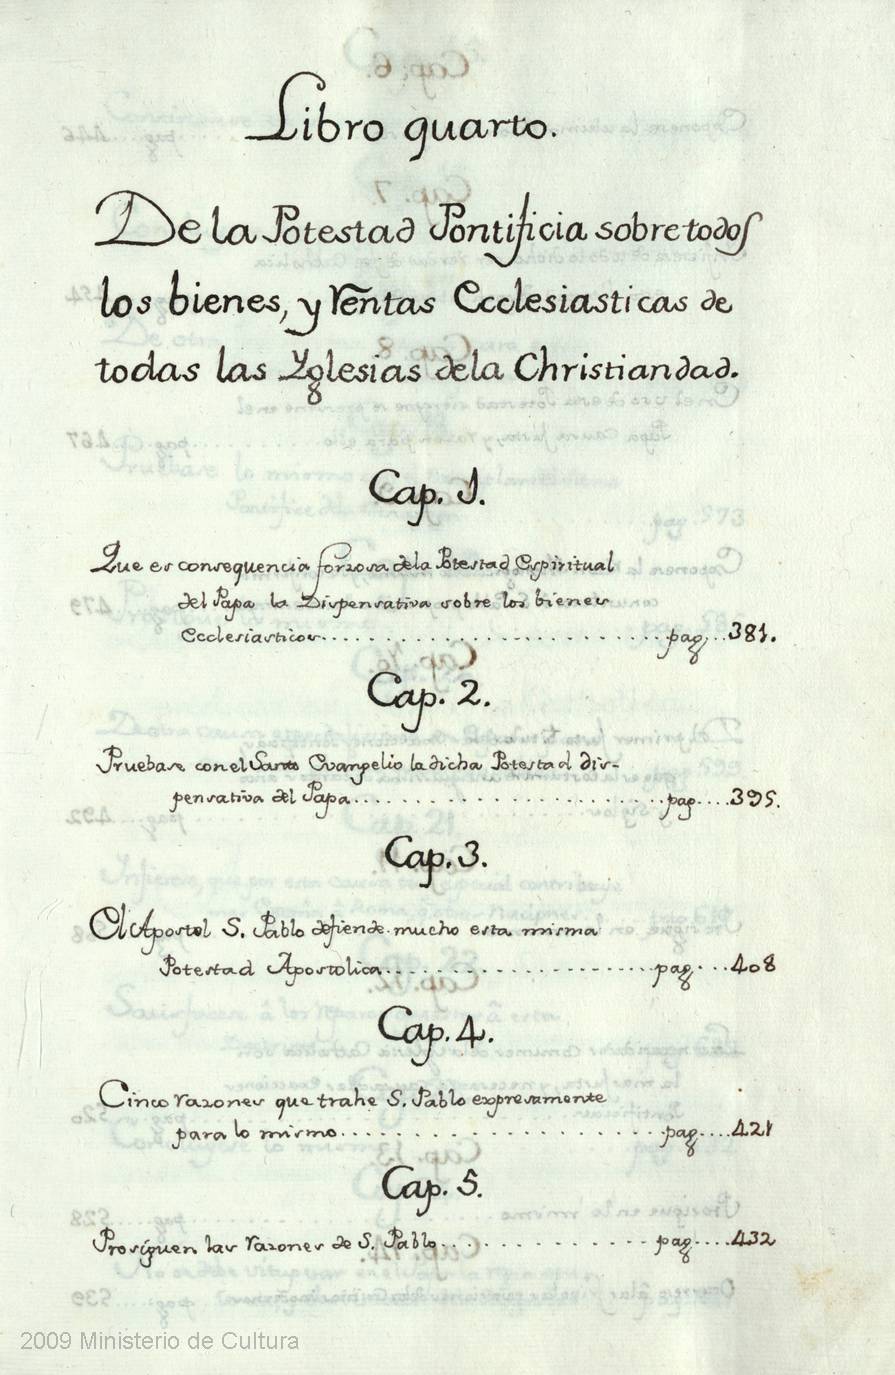 Libro quarto.
De la Potestad Pontificia sobre todos
los bienes, y Rentas Ecclesiasticas de
todas las Yglesias dela Christiandad.
Cap. 1.
Que es consequencia forzosa dela Potestad Espiritual
del Papa la Dispensativa sobre los bienes
Ecclesiasticos. . . . . . . . . . . . . . . . . . . . . pag. . . 381.
Cap. 2.
Pruebase con el Santo Evangelio la dicha Potestad dis-
pensativa del Papa. . . . . . . . . . . . . . . . . . . pag. . . . 395.
Cap. 3.
El Apostol S. Pablo defiende mucho esta misma
Potestad Apostolica. . . . . . . . . . . . . . . . . . pag. . . . 408
Cap. 4.
Cinco razones que trahe S. Pablo expresamente
para lo mismo. . . . . . . . . . . . . . . . . . . . . pag. . . . 421
Cap. 5.
Prosiguen las razones de S. Pablo. . . . . . . . . . . . pag. . . . 432
2009 Ministerio de Cultura